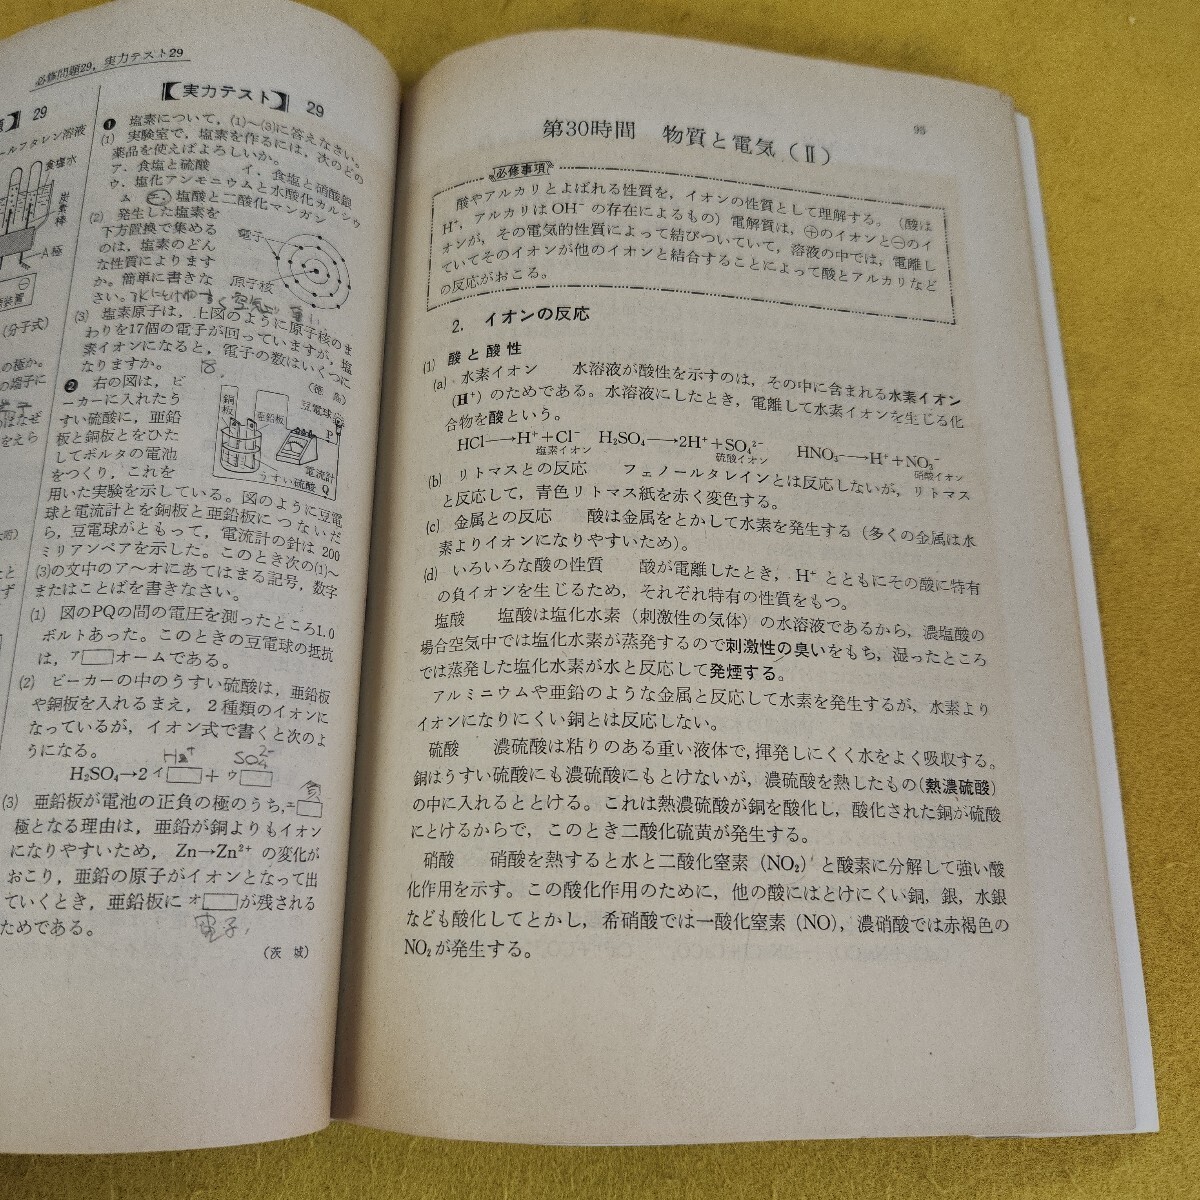 必修問題29，実力テスト29
29
ールフタレン溶液
食塩水
炭素棒
A極
装置
(分子式)
の極か。
の端子に
はなぜ
をえら
【実力テスト】 29
❶ 塩素について，(1)～(3)に答えなさい。
(1) 実験室で，塩素を作るには，次のどの
薬品を使えばよろしいか。
ア．食塩と硫酸　イ．食塩と硝酸銀
ウ．塩化アンモニウムと水酸化カルシウ
ム　塩酸と二酸化マンガン
(2) 発生した塩素を
下方置換で集める
のは，塩素のどん
な性質によります
か。簡単に書きな
さい。
電子
原子核
(3) 塩素原子は，上図のように原子核のま
わりを17個の電子が回っていますが，塩
素イオンになると，電子の数はいくつに
なりますか。 18.
(徳島)
❷ 右の図は，ビ
ーカーに入れたう
すい硫酸に，亜鉛
板と銅板とをひた
してボルタの電池
をつくり，これを
銅板
亜鉛板
豆電球
P
電流計
うすい硫酸 Q
用いた実験を示している。図のように豆電
球と電流計とを銅板と亜鉛板に つないだ
ら，豆電球がともって，電流計の針は 200
ミリアンペアを示した。このとき次の(1)～
(3)の文中のア～オにあてはまる記号，数字
またはことばを書きなさい。
(1) 図のPQの間の電圧を測ったところ1.0
ボルトあった。このときの豆電球の抵抗
は，ア□オームである。
(2) ビーカーの中のうすい硫酸は，亜鉛板
や銅板を入れるまえ，2種類のイオンに
なっているが，イオン式で書くと次のよ
うになる。
SO₄²⁻
H₂SO₄→2 イ□＋ウ□
負
(3) 亜鉛板が電池の正負の極のうち，ニ□
極となる理由は，亜鉛が銅よりもイオン
になりやすいため，Zn→Zn²⁺ の変化が
おこり，亜鉛の原子がイオンとなって出
ていくとき，亜鉛板に オ□が残される
ためである。
電子
(茨 城)
95
第30時間　物質と電気(Ⅱ)
必修事項
酸やアルカリとよばれる性質を，イオンの性質として理解する。（酸は
H⁺，アルカリはOH⁻ の存在によるもの）電解質は，⊕のイオンと⊖のイ
オンが，その電気的性質によって結びついていて，溶液の中では，電離し
ていてそのイオンが他のイオンと結合することによって酸とアルカリなど
の反応がおこる。
2. イオンの反応
(1) 酸と酸性
(a) 水素イオン　水溶液が酸性を示すのは，その中に含まれる水素イオン
(H⁺)のためである。水溶液にしたとき，電離して水素イオンを生じる化
合物を酸という。
HCl⟶H⁺＋Cl⁻　H₂SO₄⟶2H⁺＋SO₄²⁻　HNO₃⟶H⁺＋NO₃⁻
塩素イオン　硫酸イオン　硝酸イオン
(b) リトマスとの反応　フェノールタレインとは反応しないが，リトマス
と反応して，青色リトマス紙を赤く変色する。
(c) 金属との反応　酸は金属をとかして水素を発生する（多くの金属は水
素よりイオンになりやすいため）。
(d) いろいろな酸の性質　酸が電離したとき，H⁺ とともにその酸に特有
の負イオンを生じるため，それぞれ特有の性質をもつ。
塩酸　塩酸は塩化水素（刺激性の気体）の水溶液であるから，濃塩酸の
場合空気中では塩化水素が蒸発するので刺激性の臭いをもち，湿ったところ
では蒸発した塩化水素が水と反応して発煙する。
アルミニウムや亜鉛のような金属と反応して水素を発生するが，水素より
イオンになりにくい銅とは反応しない。
硫酸　濃硫酸は粘りのある重い液体で，揮発しにくく水をよく吸収する。
銅はうすい硫酸にも濃硫酸にもとけないが，濃硫酸を熱したもの(熱濃硫酸)
の中に入れるととける。これは熱濃硫酸が銅を酸化し，酸化された銅が硫酸
にとけるからで，このとき二酸化硫黄が発生する。
硝酸　硝酸を熱すると水と二酸化窒素（NO₂）と酸素に分解して強い酸
化作用を示す。この酸化作用のために，他の酸にはとけにくい銅，銀，水銀
なども酸化してとかし，希硝酸では一酸化窒素（NO），濃硝酸では赤褐色の
NO₂が発生する。